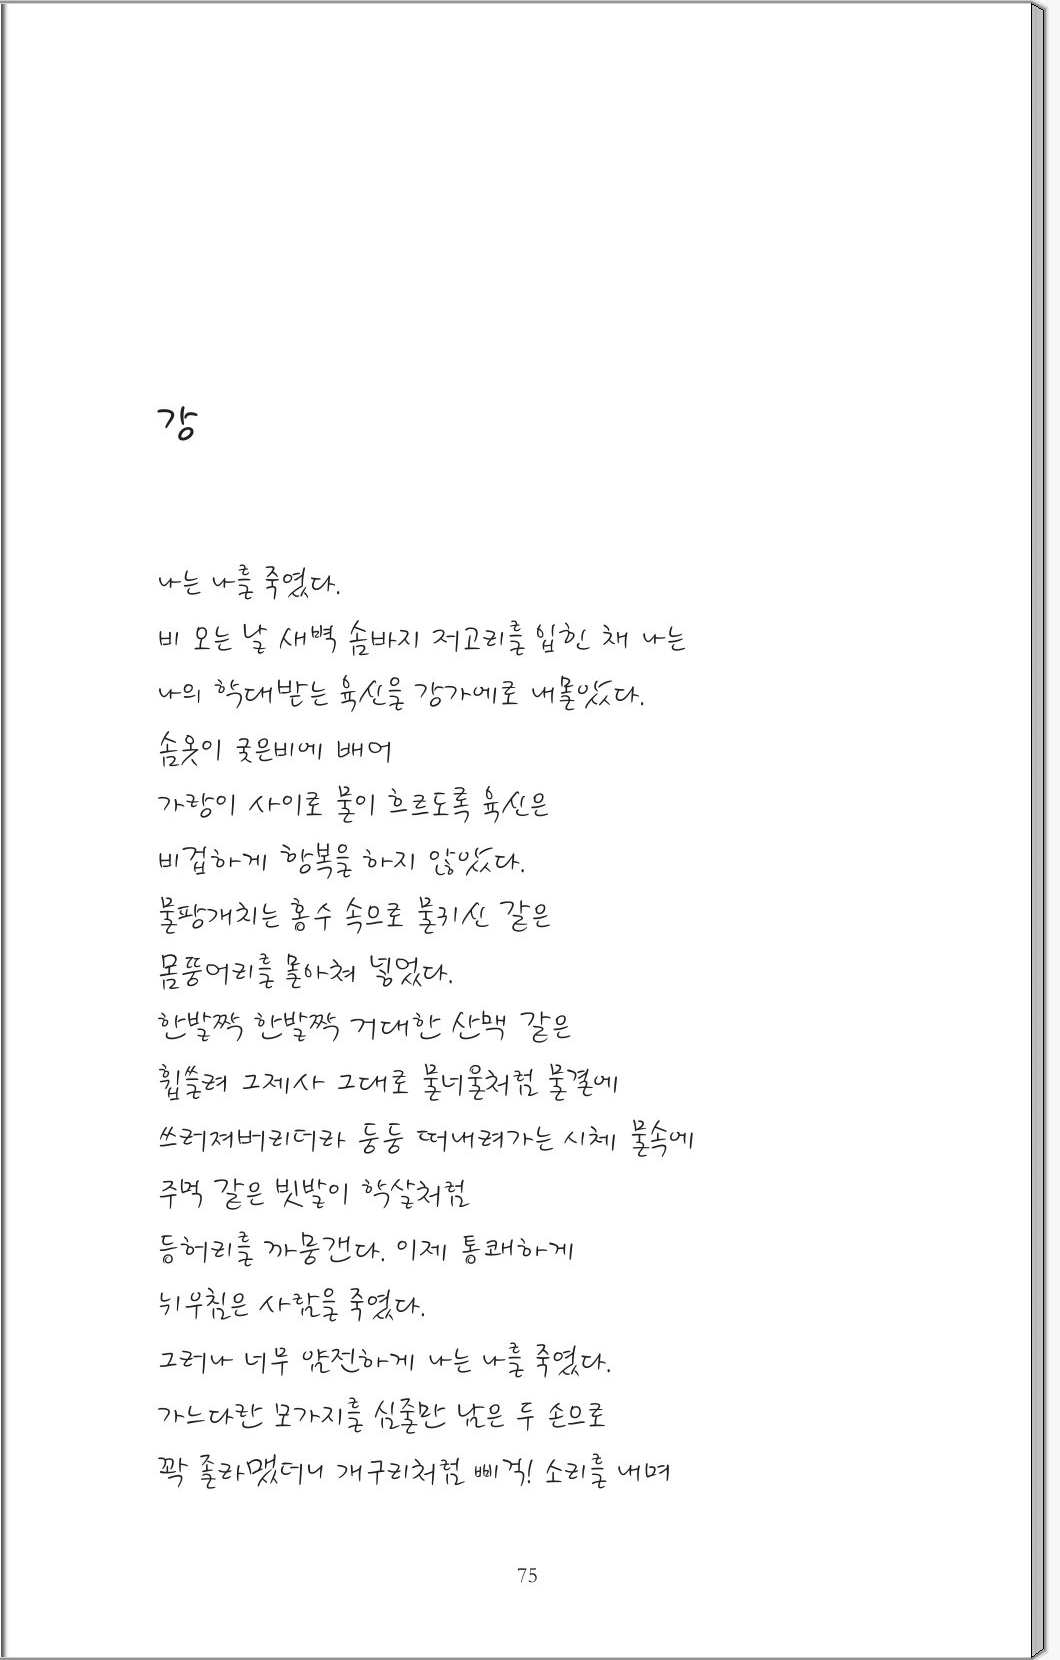 강
나는 나를 죽였다.
비 오는 날 새벽 솜바지 저고리를 입힌 채 나는
나의 학대받는 육신을 강가에로 내몰았다.
솜옷이 궂은비에 배어
가랑이 사이로 물이 흐르도록 육신은
비겁하게 항복을 하지 않았다.
물팡개치는 홍수 속으로 물귀신 같은
몸뚱어리를 몰아쳐 넣었다.
한발짝 한발짝 거대한 산맥 같은
휩쓸려 그제사 그대로 물너울처럼 물결에
쓰러져버리더라 둥둥 떠내려가는 시체 물속에
주먹 같은 빗발이 학살처럼
등허리를 까뭉갠다. 이제 통쾌하게
뉘우침은 사람을 죽였다.
그러나 너무 얌전하게 나는 나를 죽였다.
가느다란 모가지를 심줄만 남은 두 손으로
꽉 졸라맸더니 개구리처럼 삐걱! 소리를 내며
75